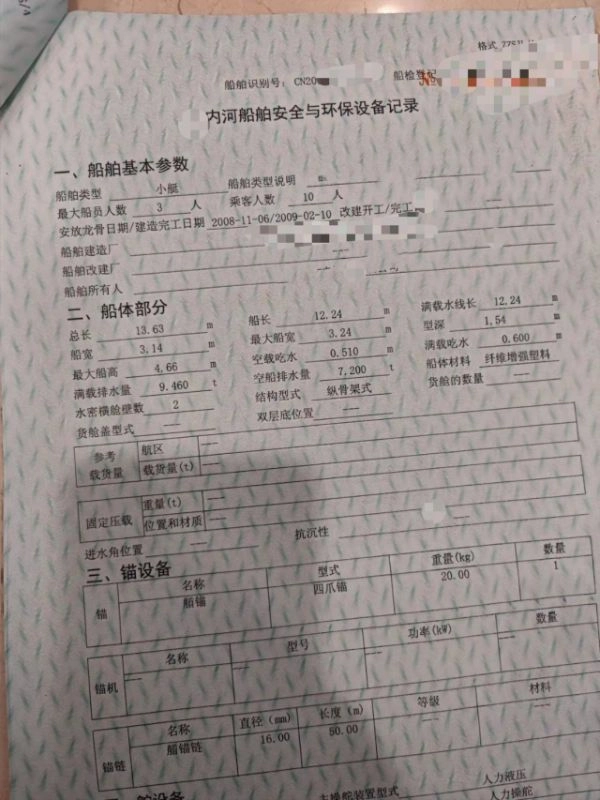 格式
船舶识别号: CN20
船检登记 №
内河船舶安全与环保设备记录
一、船舶基本参数
船舶类型 小艇 船舶类型说明
最大船员人数 3 人 乘客人数 10 人
安放龙骨日期/建造完工日期 2008-11-06/2009-02-10 改建开工/完工
船舶建造厂
船舶改建厂
船舶所有人
二、船体部分
总长 13.63 m 船长 12.24 m 满载水线长 12.24 m
船宽 3.14 m 最大船宽 3.24 m 型深 1.54 m
最大船高 4.66 m 空载吃水 0.510 m 满载吃水 0.600 m
满载排水量 9.460 t 空船排水量 7.200 t 船体材料 纤维增强塑料
水密横舱壁数 2 结构型式 纵骨架式 货舱的数量 ---
货舱盖型式 --- 双层底位置 ---
参考载货量 航区 ---
载货量(t) ---
固定压载 重量(t) ---
位置和材质 ---
进水角位置 --- 抗沉性
三、锚设备
锚 名称 型式 重量(kg) 数量
艏锚 四爪锚 20.00 1
锚机 名称 型号 功率(kW) 数量
--- --- --- ---
锚链 名称 直径(mm) 长度(m) 等级 材料
艏锚链 16.00 50.00 --- ---
主操舵装置型式 人力液压
人力操舵